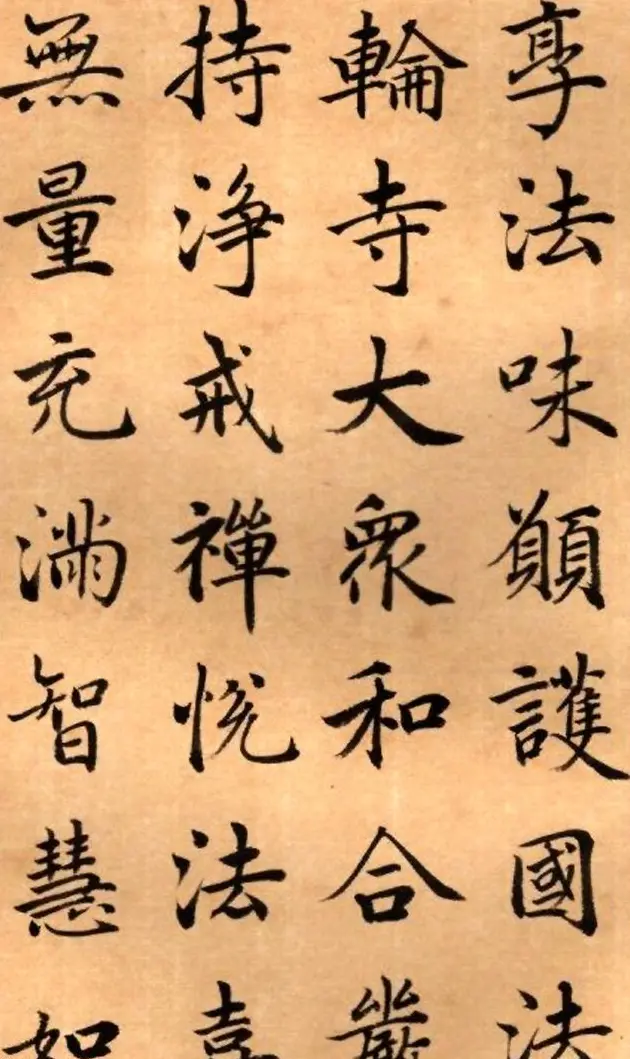 享法味願護國法
輪寺大眾和合嚴
持淨戒禪悅法喜
無量充滿智慧如